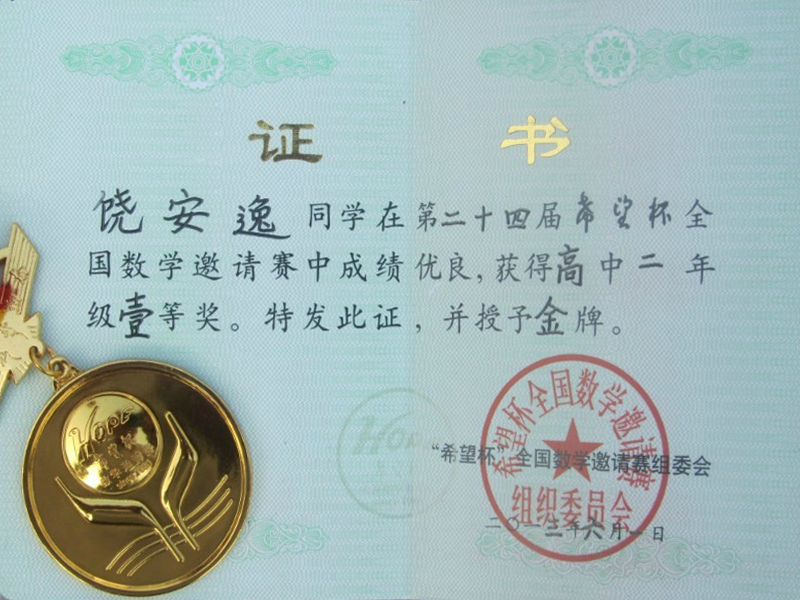 证 书
饶安逸同学在第二十四届希望杯全
国数学邀请赛中成绩优良,获得高中二年
级壹等奖。特发此证,并授予金牌。
HOPE
Hope
希望杯全国数学邀请赛
组织委员会
“希望杯”全国数学邀请赛组委会
二〇一三年六月一日